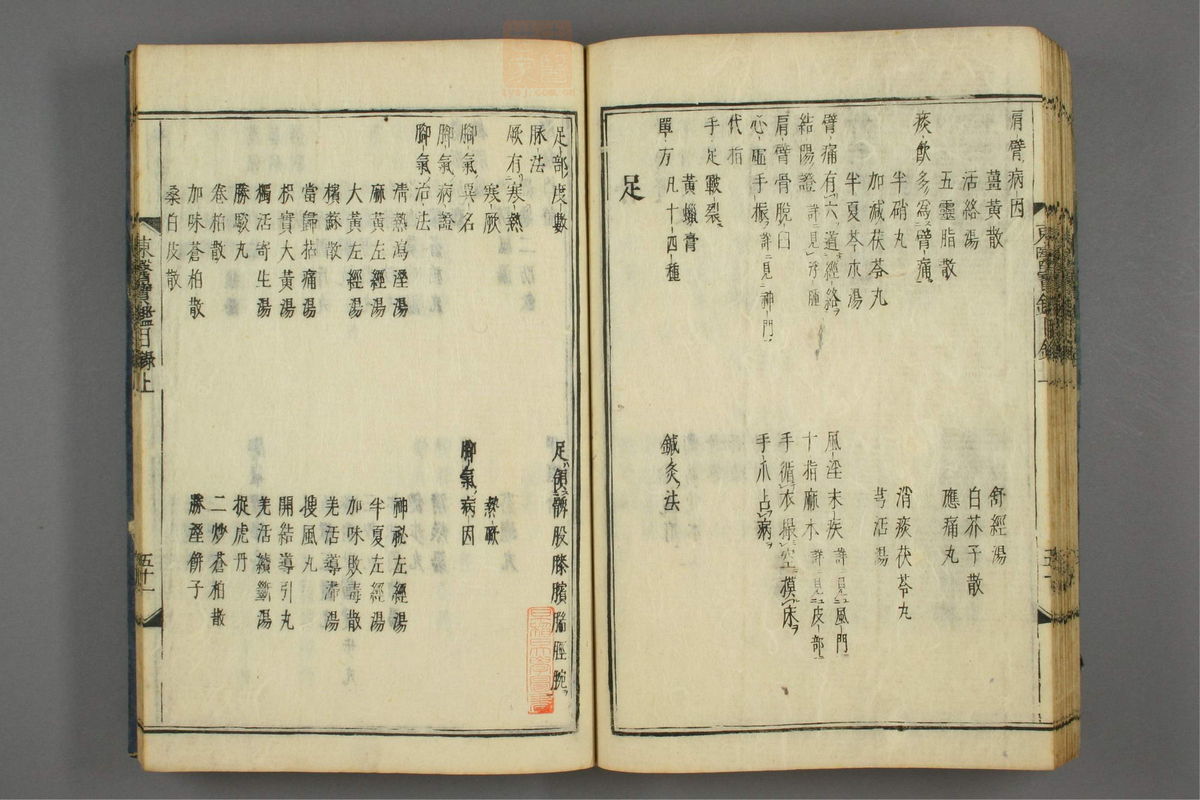 肩臂病因
薑黃散
舒經湯
活絡湯
白芥子散
五靈脂散
應痛丸
痰飲多為臂痛
半硝丸
消痰茯苓丸
加減茯苓丸
芎活湯
半夏芩朮湯
臂痛有六道經絡
風淫末疾 詳見風門
結陽證
十指麻木 詳見皮部
肩臂骨脫臼
手循衣撮空摸床
心虛手振 詳見神門
手爪占病
代指
手足皸裂
黃蠟膏
單方凡十四種
鍼灸法
足
足部度數
足便
脉法
厥有寒熱
寒厥
熱厥
脚氣異名
脚氣病因
脚氣病證
脚氣治法
清熱瀉溼湯
神祕左經湯
麻黃左經湯
半夏左經湯
大黃左經湯
加味敗毒散
檳蘇散
羌活導滯湯
當歸拈痛湯
搜風丸
枳實大黃湯
開結導引丸
獨活寄生湯
羌活續斷湯
勝駿丸
捉虎丹
卷柏散
二炒蒼柏散
加味蒼柏散
勝溼餅子
桑白皮散
東醫寶鑑目錄上
五十一